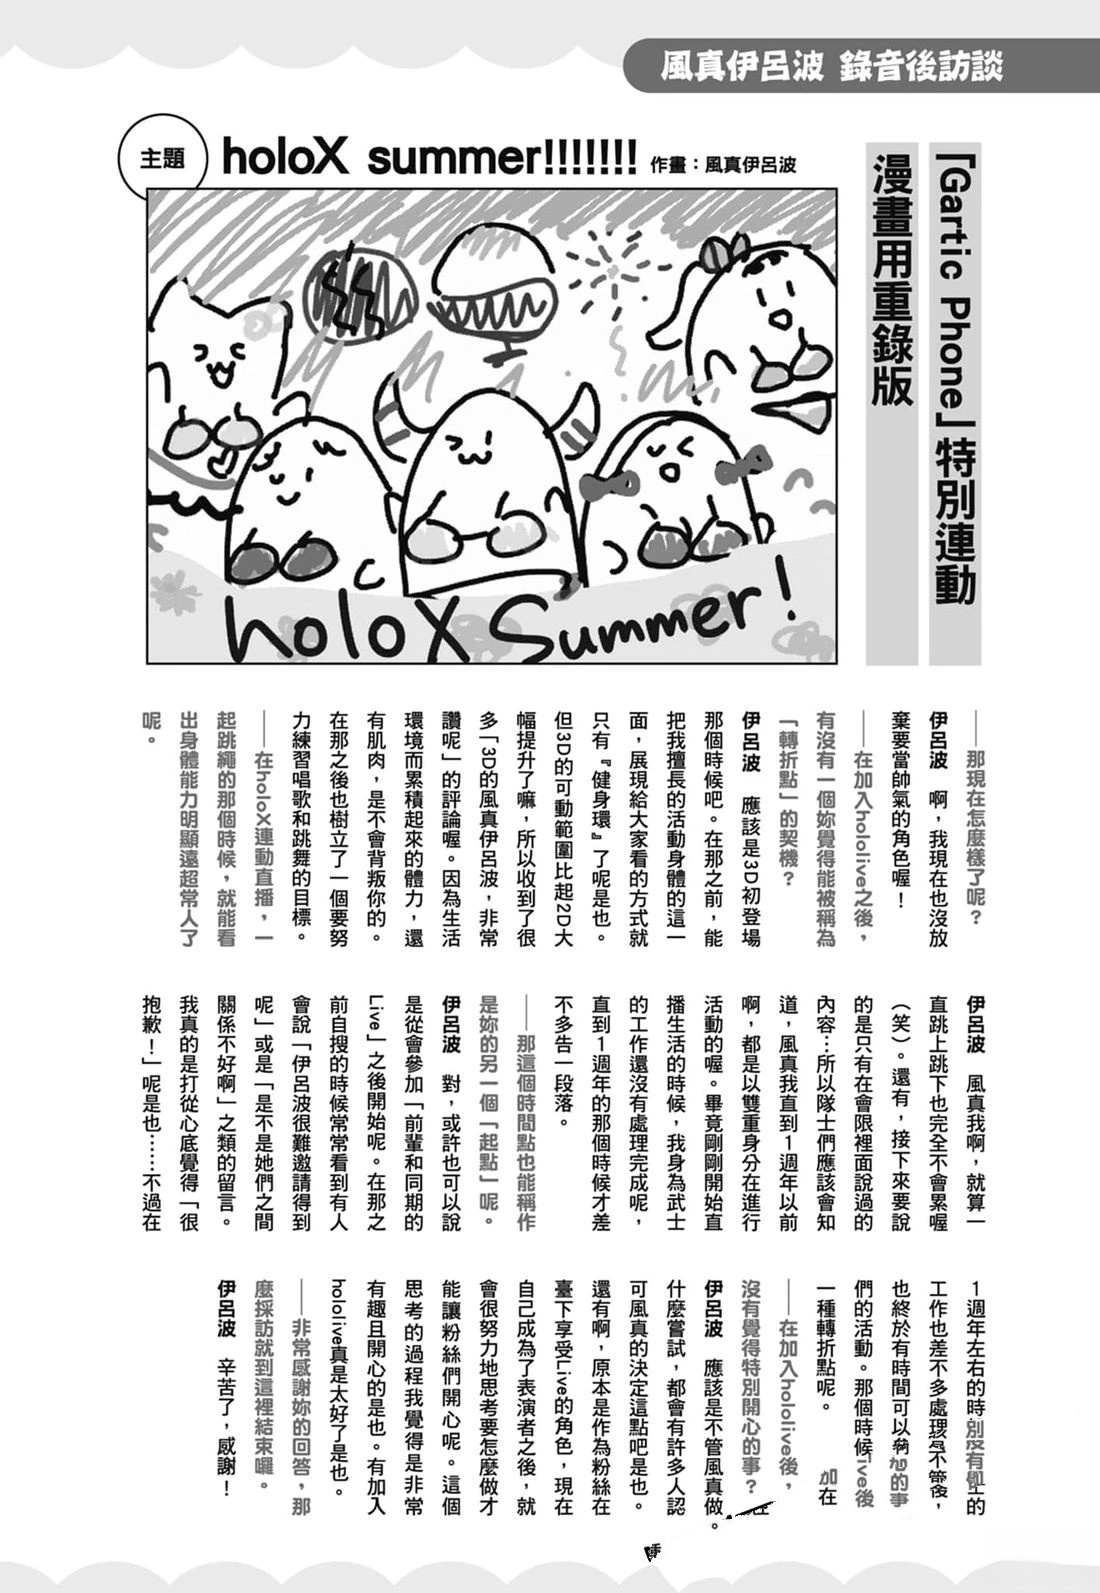 風真伊呂波 錄音後訪談
主題
holoX summer!!!!!!!
作畫：風真伊呂波
「Gartic Phone」特別連動
漫畫用重錄版
holoX Summer!
——那現在怎麼樣了呢？
伊呂波　啊，我現在也沒放
棄要當帥氣的角色喔！
——在加入hololive之後，
有沒有一個妳覺得能被稱為
「轉折點」的契機？
伊呂波　應該是3D初登場
那個時候吧。在那之前，能
把我擅長的活動身體的這一
面，展現給大家看的方式就
只有『健身環』了呢是也。
但3D的可動範圍比起2D大
幅提升了嘛，所以收到了很
多「3D的風真伊呂波，非常
讚呢」的評論喔。因為生活
環境而累積起來的體力，還
有肌肉，是不會背叛你的。
在那之後也樹立了一個要努
力練習唱歌和跳舞的目標。
——在holoX連動直播，一
起跳繩的那個時候，就能看
出身體能力明顯遠超常人了
呢。
伊呂波　風真我啊，就算一
直跳上跳下也完全不會累喔
（笑）。還有，接下來要說
的是只有在會限裡面說過的
內容…所以隊士們應該會知
道，風真我直到1週年以前
啊，都是以雙重身分在進行
活動的喔。畢竟剛剛開始直
播生活的時候，我身為武士
的工作還沒有處理完成呢，
直到1週年的那個時候才差
不多告一段落。
——那這個時間點也能稱作
是妳的另一個「起點」呢。
伊呂波　對，或許也可以說
是從會參加「前輩和同期的
Live」之後開始呢。在那之
前自搜的時候常常看到有人
會說「伊呂波很難邀請得到
呢」或是「是不是她們之間
關係不好啊」之類的留言。
我真的是打從心底覺得「很
抱歉！」呢是也……不過在
1週年左右的時
工作也差不多處
也終於有時間可以
們的活動。那個時候
一種轉折點呢。
——在加入hololive後，
沒有覺得特別開心的事？
伊呂波　應該是不管風真做
什麼嘗試，都會有許多人認
可風真的決定這點吧是也。
還有啊，原本是作為粉絲在
臺下享受Live的角色，現在
自己成為了表演者之後，就
會很努力地思考要怎麼做才
能讓粉絲們開心呢。這個
思考的過程我覺得是非常
有趣且開心的是也。有加入
hololive真是太好了是也。
——非常感謝妳的回答，那
麼採訪就到這裡結束囉。
伊呂波　辛苦了，感謝！